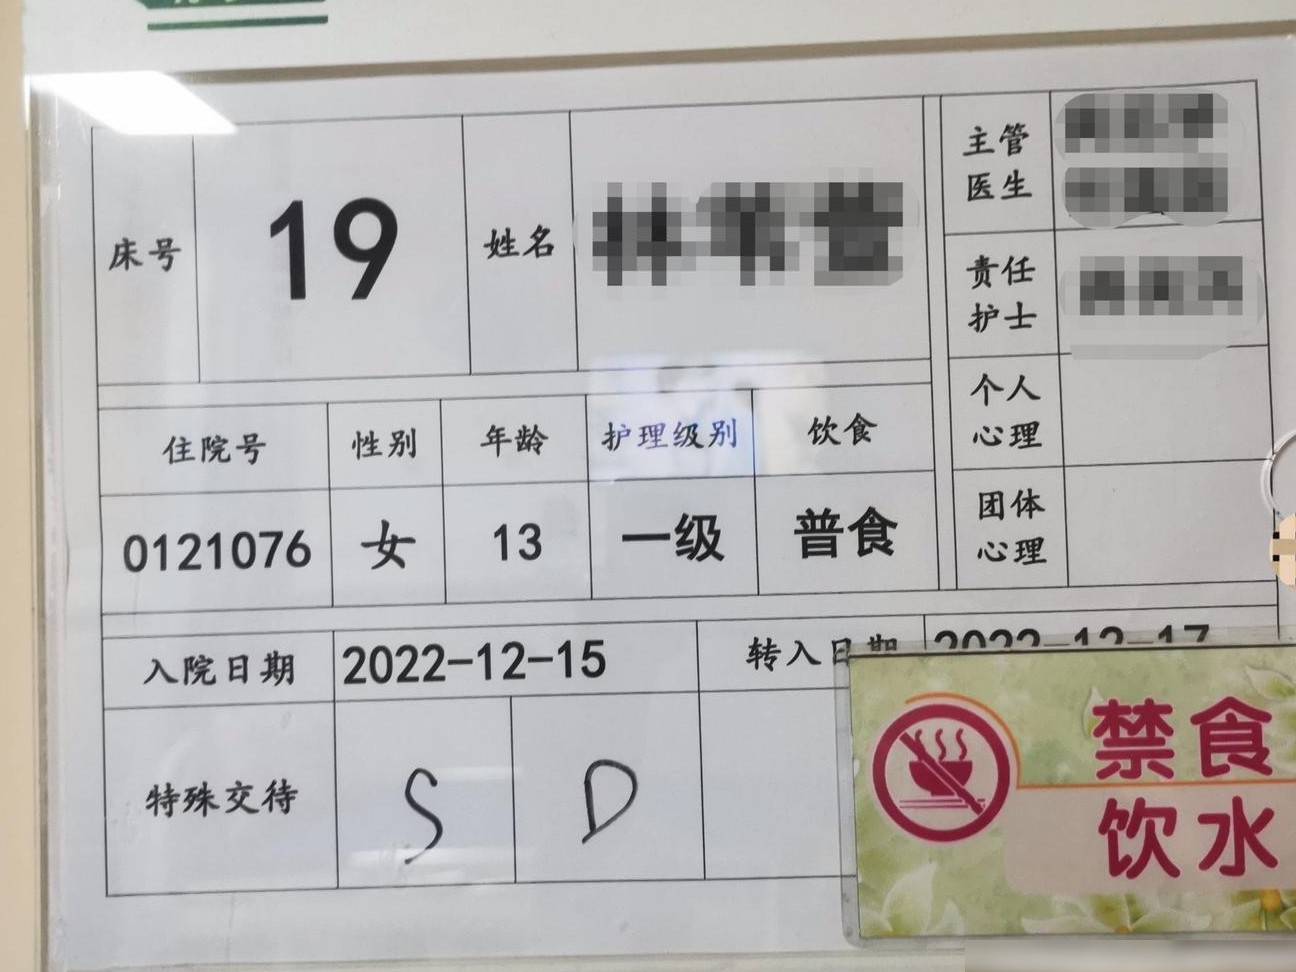 床号 19 姓名
主管
医生
责任
护士
个人
心理
团体
心理
住院号 性别 年龄 护理级别 饮食
0121076 女 13 一级 普食
入院日期 2022-12-15 转入日期 2022-12-17
特殊交待 S D
禁食
饮水